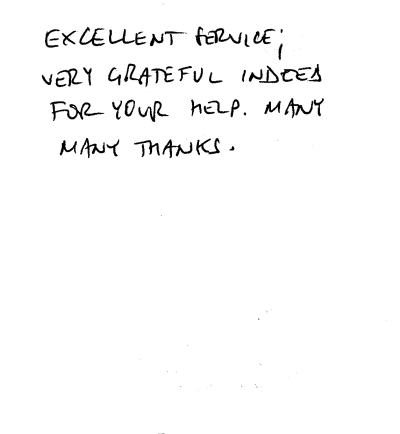 EXCELLENT SERVICE;
VERY GRATEFUL INDEED
FOR YOUR HELP. MANY
MANY THANKS.